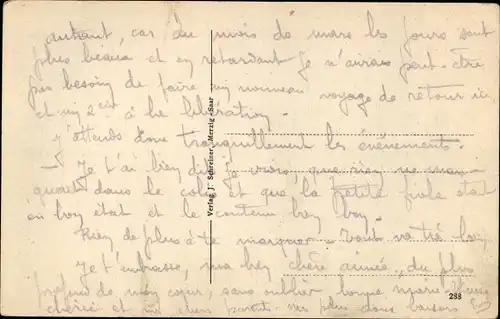 autant, car du mois de mars les jours sont
plus beaux et en retardant je n'aurais peut-être
pas besoin de faire un nouveau voyage de retour ici
et un 2e à la libération.
J'attends donc tranquillement les événements.
Je t'ai bien dit je vois que rien ne man-
quait dans le colis et que la petite fiole était
en bon état et le contenu ben bon.
Rien de plus à te marquer. Tout va très bien
Je t'embrasse, ma ben chère aimée, du plus
profond de mon cœur, sans oublier bonne
chérie et mes chers parents. plus doux baisers
Verlag J. Schreiner, Merzig-Saar
288